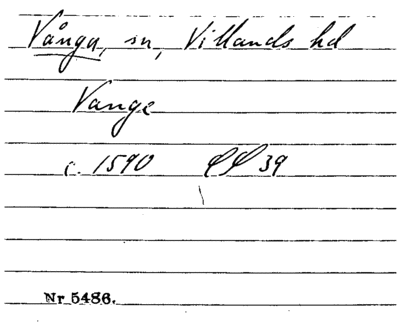 Vånga, sn, Villands hd
Vange
c. 1590 39
Nr 5486.